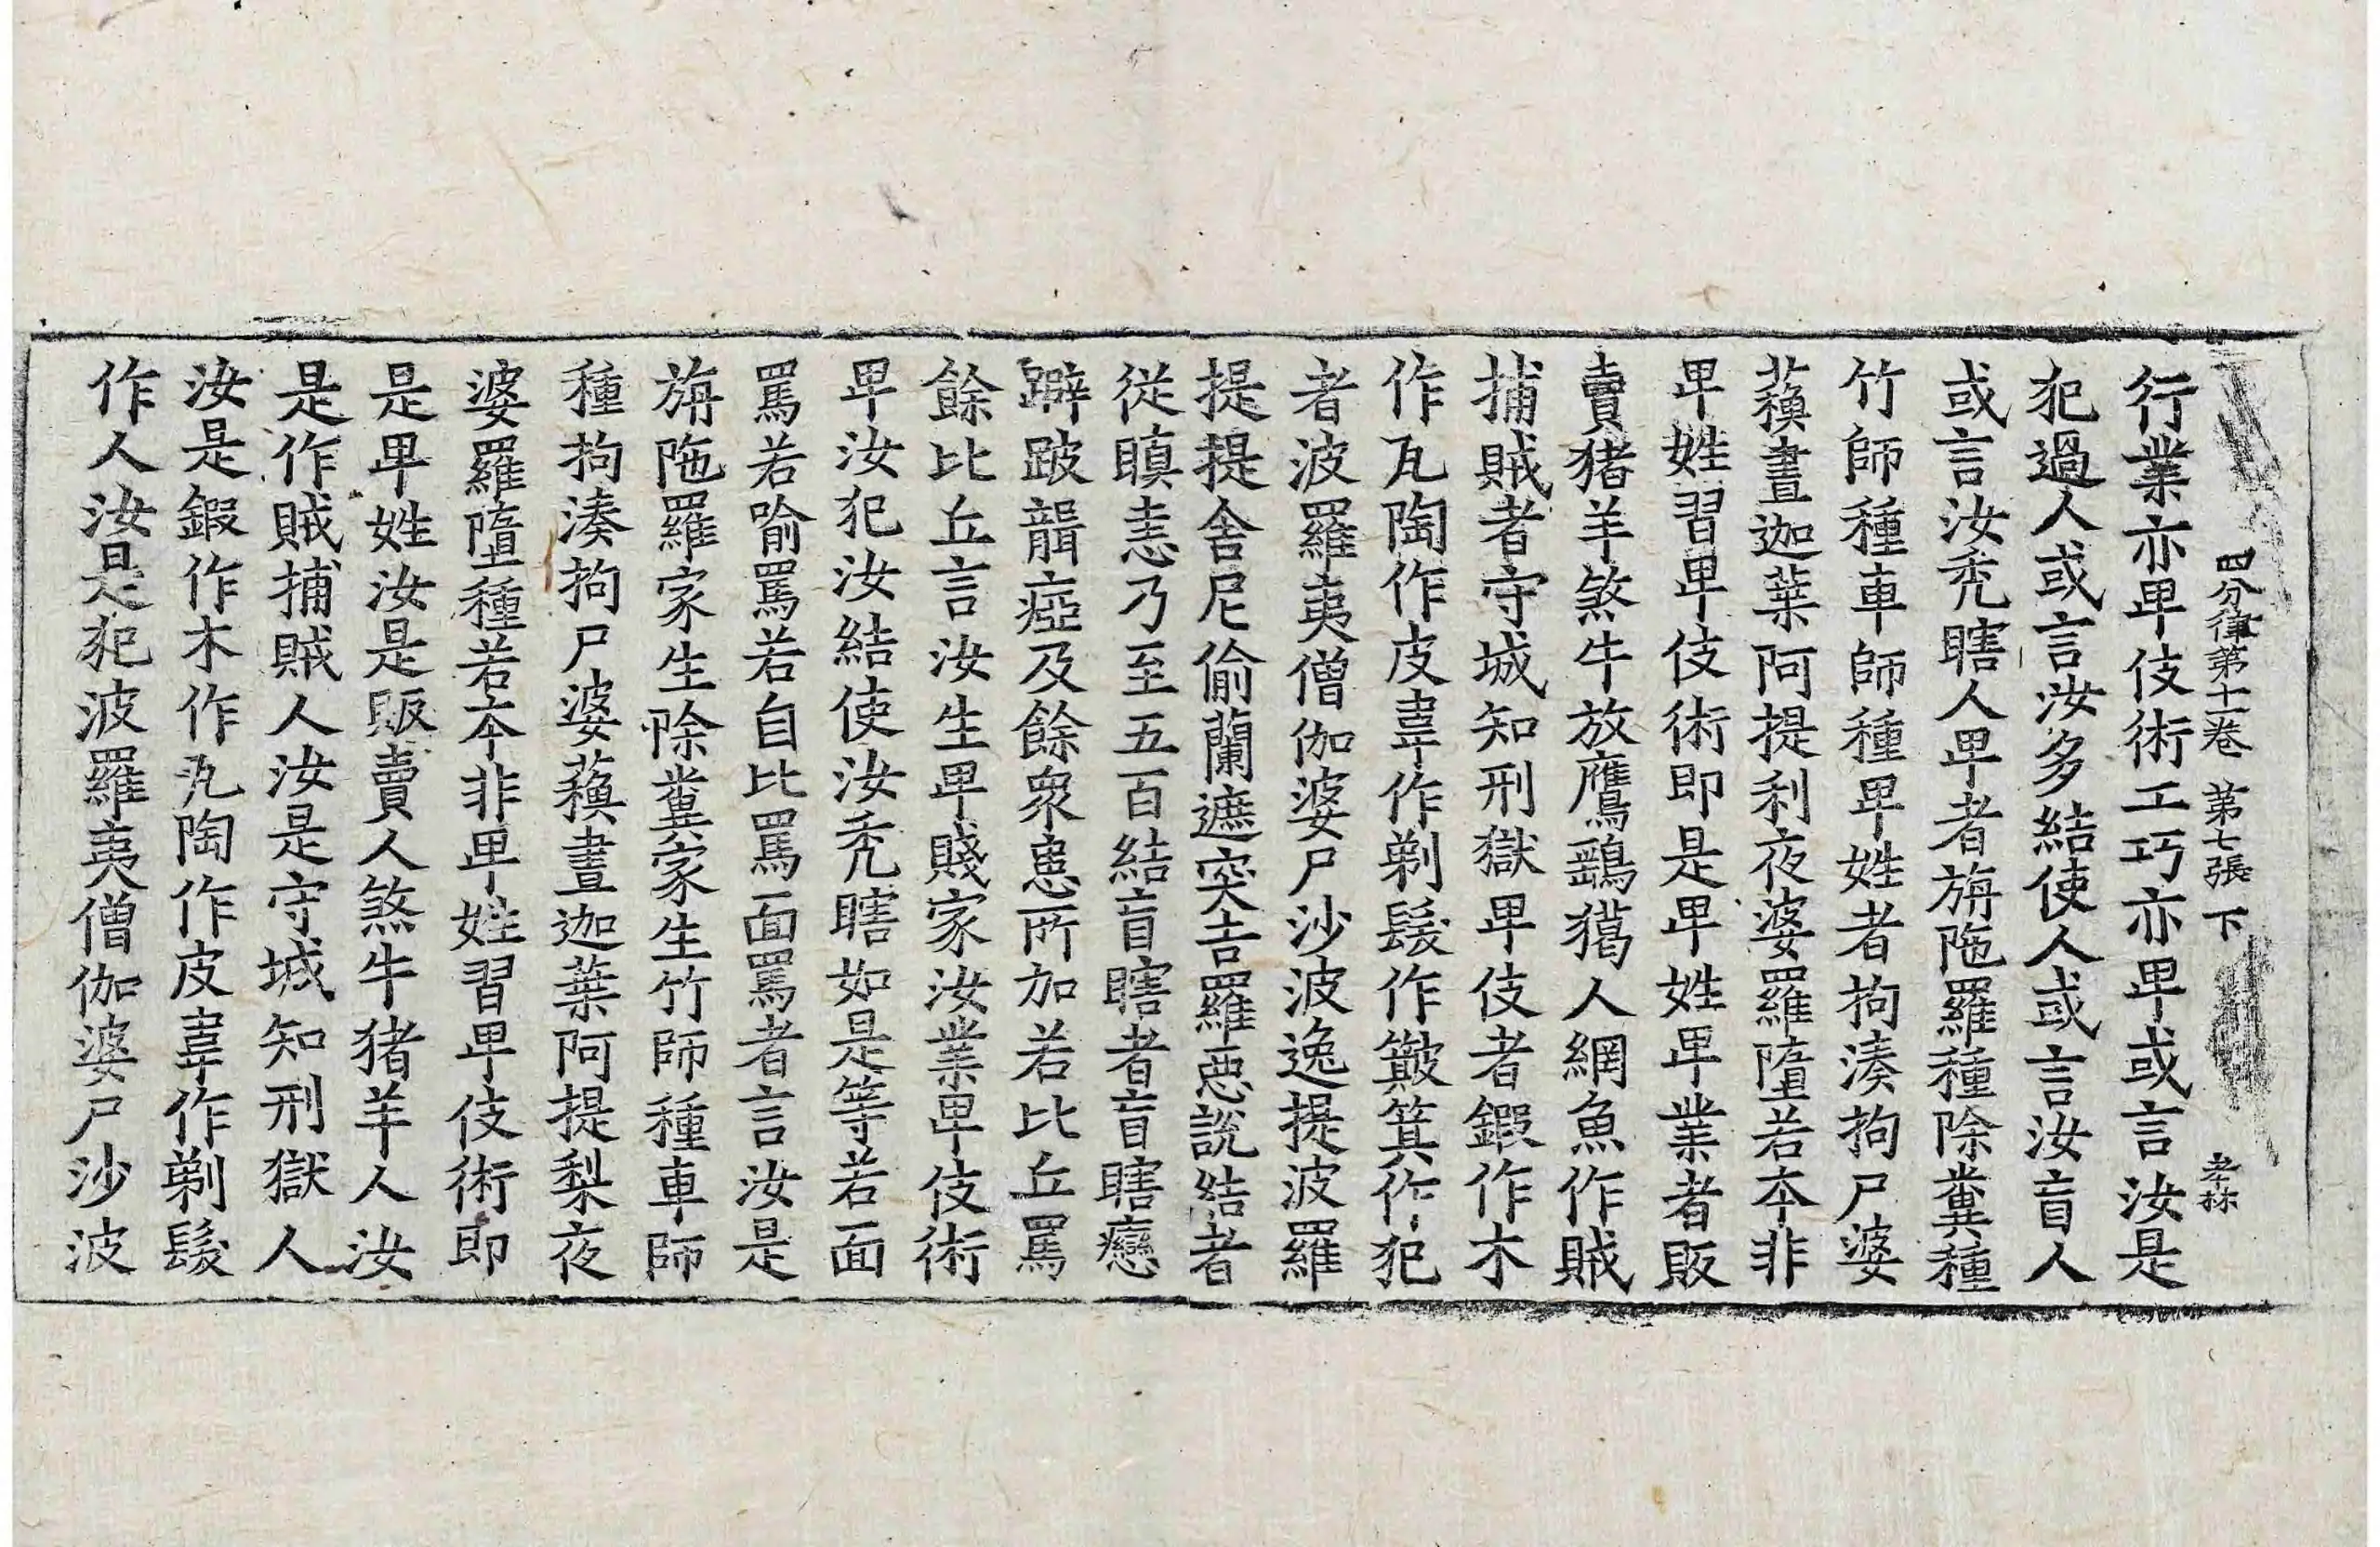 四分律第十一卷 第七張 下 孝林
行業亦卑伎術工巧亦卑或言汝是
犯過人或言汝多結使人或言汝盲人
或言汝禿瞎人卑者旃陁羅種除糞種
竹師種車師種卑姓者拘湊拘尸婆
蘓晝迦葉阿提利夜婆羅墮若夲非
卑姓習卑伎術即是卑姓卑業者販
賣猪羊煞牛放鷹鷂獦人網魚作賊
捕賊者守城知刑獄卑伎者鍜作木
作瓦陶作皮韋作剃髮作簸箕作犯
者波羅夷僧伽婆尸沙波逸提波羅
提提舍尼偷蘭遮突吉羅惡說結者
從瞋恚乃至五百結盲瞎者盲瞎癔
躃跛聾瘂及餘衆患所加若比丘罵
餘比丘言汝生卑賤家汝業卑伎術
卑汝犯汝結使汝禿瞎如是等若面
罵若喻罵若自比罵面罵者言汝是
旃陁羅家生除糞家生竹師種車師
種拘湊拘尸婆蘓晝迦葉阿提梨夜
婆羅墮種若夲非卑姓習卑伎術即
是卑姓汝是販賣人煞牛猪羊人汝
是作賊捕賊人汝是守城知刑獄人
汝是鍜作木作瓦陶作皮韋作剃髮
作人汝是犯波羅夷僧伽婆尸沙波